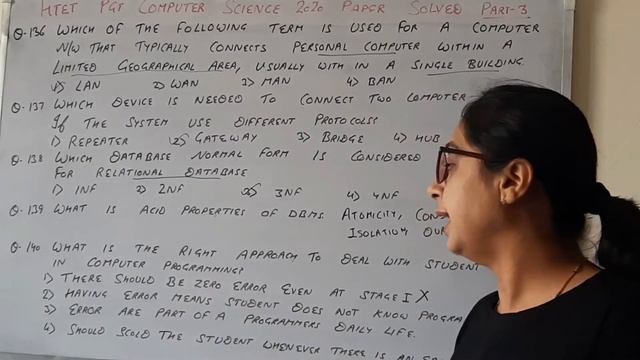 HTET PGT COMPUTER SCIENCE 2020 PAPER SOLVED PART-3
Q.136 WHICH OF THE FOLLOWING TERM IS USED FOR A COMPUTER
N/W THAT TYPICALLY CONNECTS PERSONAL COMPUTER WITHIN A
LIMITED GEOGRAPHICAL AREA, USUALLY WITH IN A SINGLE BUILDING.
1) LAN 2) WAN 3) MAN 4) BAN
Q.137 WHICH DEVICE IS NEEDED TO CONNECT TWO COMPUTER
If THE SYSTEM USE DIFFERENT PROTOCOLS?
1) REPEATER 2) GATEWAY 3) BRIDGE 4) HUB
Q.138 WHICH DATABASE NORMAL FORM IS CONSIDERED
FOR RELATIONAL DATABASE
1) 1NF 2) 2NF 3) 3NF 4) 4NF
Q.139 WHAT IS ACID PROPERTIES OF DBMS. ATOMICITY,
ISOLATION
Q.140 WHAT IS THE RIGHT APPROACH TO DEAL WITH STUDENT
IN COMPUTER PROGRAMMING?
1) THERE SHOULD BE ZERO ERROR EVEN AT STAGE I X
2) HAVING ERROR MEANS STUDENT DOES NOT KNOW
3) ERROR ARE PART OF A PROGRAMMERS DAILY LIFE.
4) SHOULD SCOLD THE STUDENT WHENEVER THERE IS AN